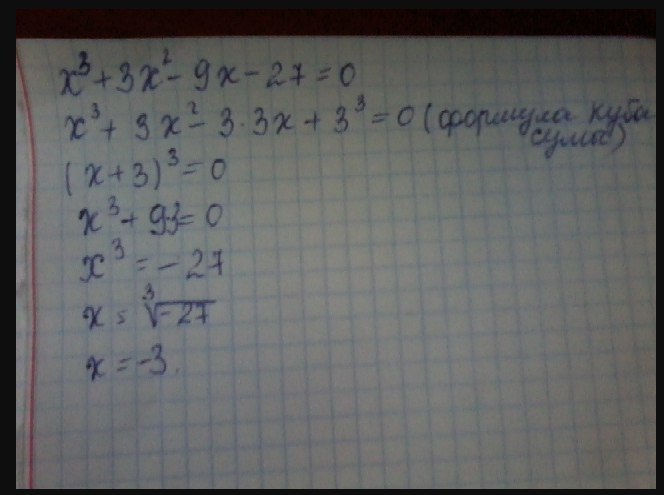 x³ + 3x² - 9x - 27 = 0
x³ + 3x² - 3·3x + 3³ = 0 (формула куба
сумы)
(x + 3)³ = 0
x³ + 93 = 0
x³ = - 27
x = ∛-27
x = -3.